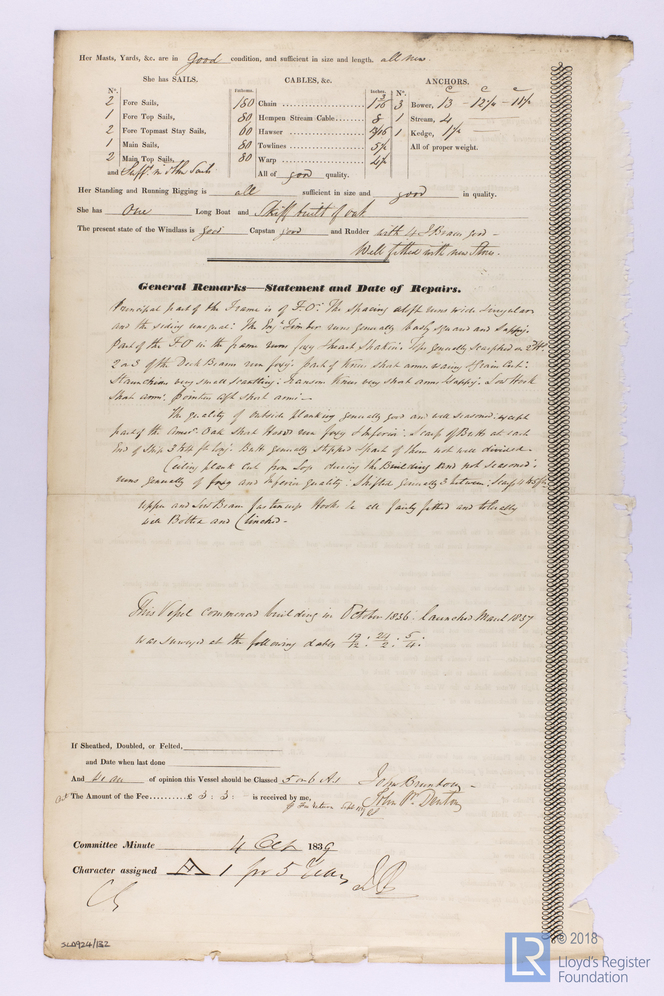 Her Masts, Yards, &c. are in good condition, and sufficient in size and length. all new
She has SAILS. CABLES, &c. ANCHORS.
Nº. Fathoms. Inches. Nº. C C C
2 Fore Sails, 180 Chain 1 3/16 3 Bower, 13 - 12½ - 11½
1 Fore Top Sails, 80 Hempen Stream Cable 8 1 Stream, 4
2 Fore Topmast Stay Sails, 60 Hawser 1 Kedge,
1 Main Sails, 80 Towlines 5½ All of proper weight.
2 Main Top Sails, 80 Warp 4½
and Suff.t in other Sails All of good quality.
Her Standing and Running Rigging is all sufficient in size and good in quality.
She has One Long Boat and Skiff built of oak
The present state of the Windlass is good Capstan good and Rudder with 4 Braces good -
Well fitted with new Stores.
General Remarks—Statement and Date of Repairs.
Principal part of the Frame is of F.O: The spacing aloft runs wide & irregular
and the siding unequal: The Eng.h Timber runs generally badly squared and Sappy.
Part of the F O in the frame runs foxy & heart Shaken. Tops generally Scarphed on
2 or 3 of the Deck Beams run foxy: part of Knees short arms &
Stanchions very small scantling: Transom Knees very short arms & Sappy. Low Hook
Short arms. Pointers aft short arms.
The quality of outside planking generally good and well seasoned: except
part of the Amer.n Oak Short Hoods run foxy & Inferior: Scarp of Butts at each
End of Ship 3 to 4 ft long. Butts generally stopped & part of them not well divided.
Ceiling plank Cut from Logs during the Building and not Seasoned:
runs generally of foxy and Inferior quality: Shifted generally 3 between: Scarp 4 to 5 ft
Upper and Low Beam fastenings Hooks &c all fairly fitted and tolerably
well Bolted and Clinched -
This Vessel commenced building in October 1836: launched March 1837
was surveyed at the following dates 19/12: 24/2: 5/4:
If Sheathed, Doubled, or Felted,
and Date when last done
And we are of opinion this Vessel should be Classed 5 or 6 A.1
The Amount of the Fee £ 3: 3: - is received by me, John P. Denton
Committee Minute 4 Oct 1839
Character assigned A 1 for 5 Years
SLD924/132
© 2018
LR
Lloyd's Register
Foundation